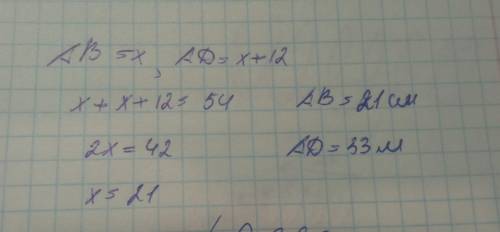 AB = x, AD = x+12
x + x + 12 = 54 AB = 21 см
2x = 42 AD = 33 м
x = 21